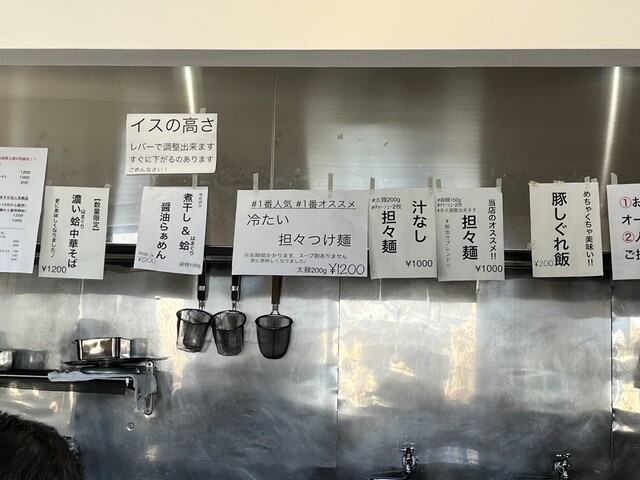 イスの高さ
レバーで調整出来ます
すぐに下がるのあります
ごめんなさい！
1200
1000
【数量限定】
濃い蛤中華そば
はまぐり
更に美味しくなりました♪
¥1200
煮干し＆蛤
はまぐり
醤油らぁめん
細麺150g
#1番人気 #1番オススメ
冷たい
担々つけ麺
※お時間かかります、スープ割ありません
更に美味しくなりました♪
太麺200g ¥1200
#太麺200g
#チャーシュー2枚
汁なし
担々麺
¥1000
#細麺150g
#チャーシュー2枚
#辛さ調整出来ます
当店のオススメ!!
担々麺
¥1000
めちゃくちゃ美味い!!
豚しぐれ飯
¥200
①
オー
②人
ご招